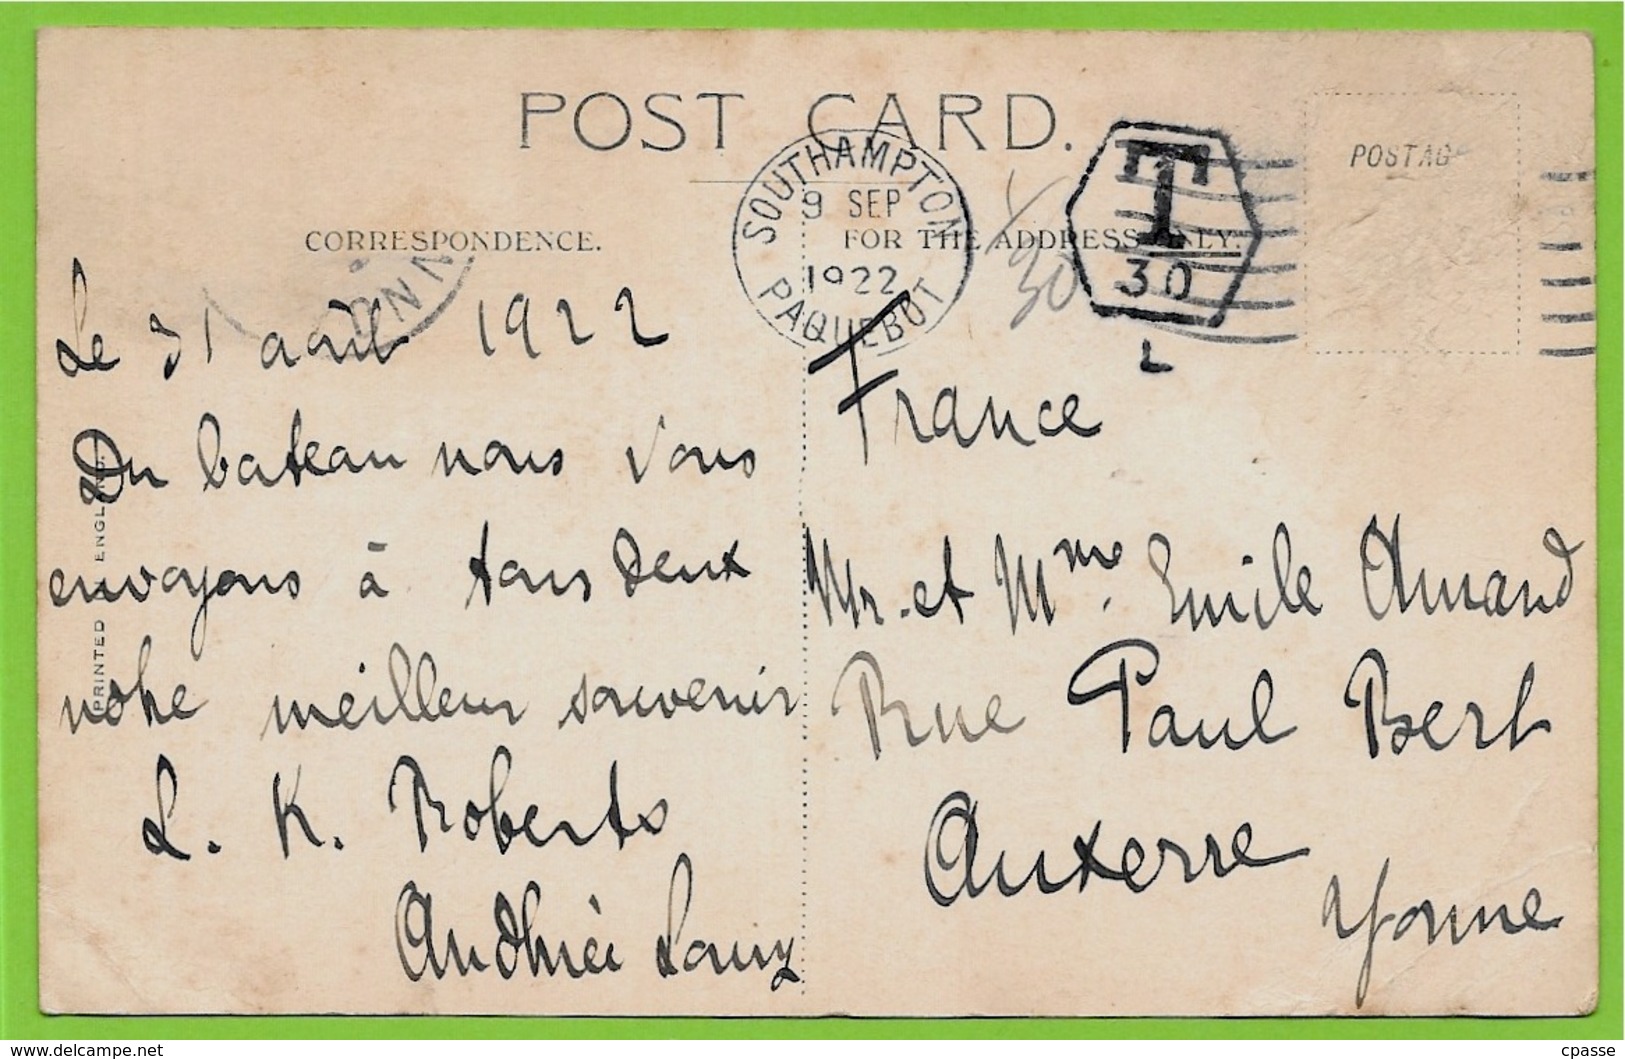 POST CARD.
SOUTHAMPTON
9 SEP
1922
PAQUEBOT
T
30
L
1/30
POSTAG
CORRESPONDENCE.
FOR THE ADDRESS ONLY.
PRINTED ENGL
Le 31 août 1922
Du bateau nous vous
envoyons à tous deux
notre meilleur souvenir
L. K. Roberts
France
Mr. et Mme. Emile Amand
Rue Paul Bert
Auxerre
Yonne
cpasse